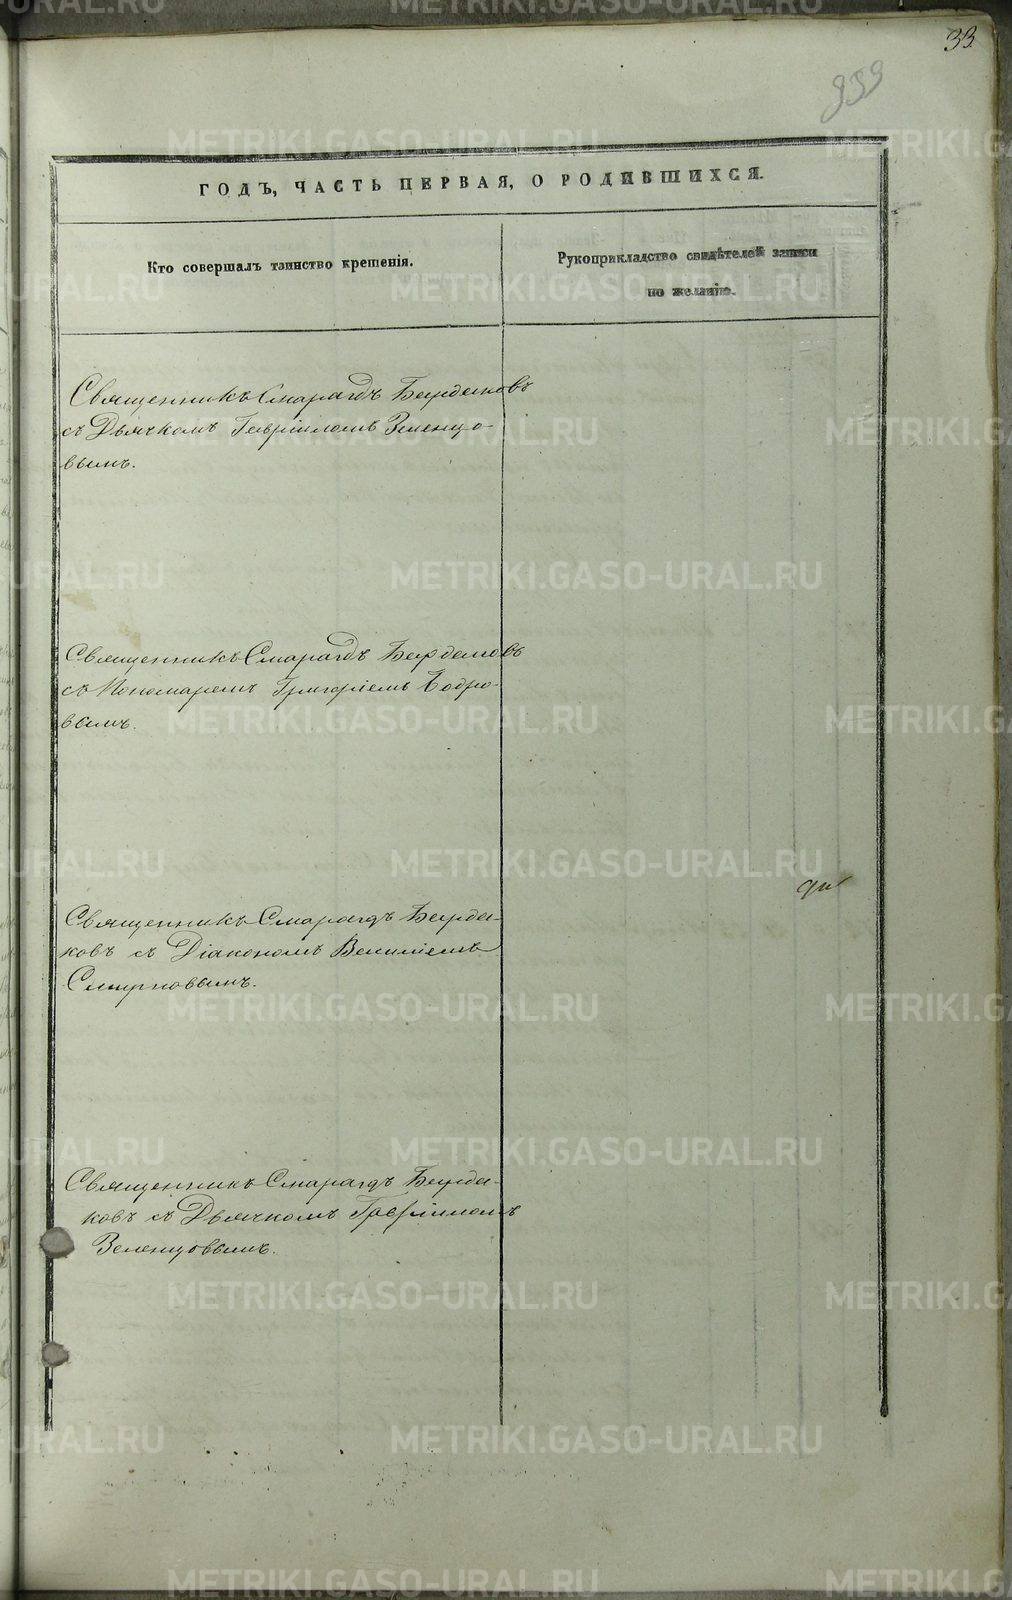 33
939
ГОДЪ, ЧАСТЬ ПЕРВАЯ, О РОДИВШИХСЯ.
Кто совершалъ таинство крещенія.
Рукоприкладство свидѣтелей записи
по желанію.
Священникъ Смарагдъ Бурдаковъ
съ Дьячкомъ Гавріиломъ Зеленцо-
вымъ.
Священникъ Смарагдъ Бурдаковъ
съ Пономаремъ Григоріемъ Бобро-
вымъ.
Священникъ Смарагдъ Бурда-
ковъ съ Діакономъ Василіемъ
Смирновымъ.
Священникъ Смарагдъ Бурда-
ковъ съ Дьячкомъ Гавріиломъ
Зеленцовымъ.
METRIKI.GASO-URAL.RU